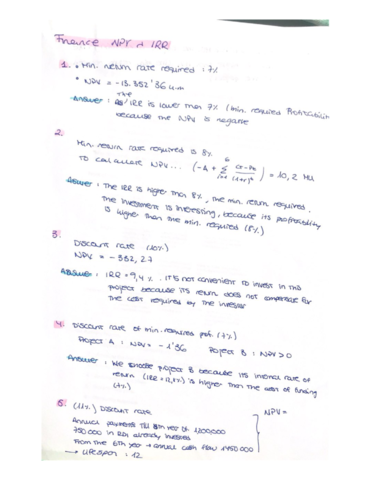 Finance NPV + IRR
1. • Min. return rate required : 7%
• NPV = -13.352'36 u.m
the
Answer : IRR is lower than 7% (min. required Profitability
because the NPV is negative
2.
Min. return rate required is 8%
TO calculate NPV... (-A + Σ = 10,2 Mu
Answer : The IRR is higher than 8%, the min. return required.
The investment is interesting, because its profitability
is higher than the min. required (8%)
3.
Discount rate (10%)
NPV = - 352,27
Answer : IRR = 9,4%. It is not convenient to invest in this
project because its return does not compensate for
the cost required by the investor
4. Discount rate of min. required prof. (7%)
Project A : NPV = - 1'36 Project B : NPV > 0
Answer : We choose project B because its internal rate of
return (IRR = 12,8%) is higher than the cost of funding
(7%)
5. (11%) Discount rate NPV =
Annual payments till 5th year of 1200,000
750.000 in R&D already invested
From the 6th year → annual cash flow 1'450 000
→ Lifespan : 12